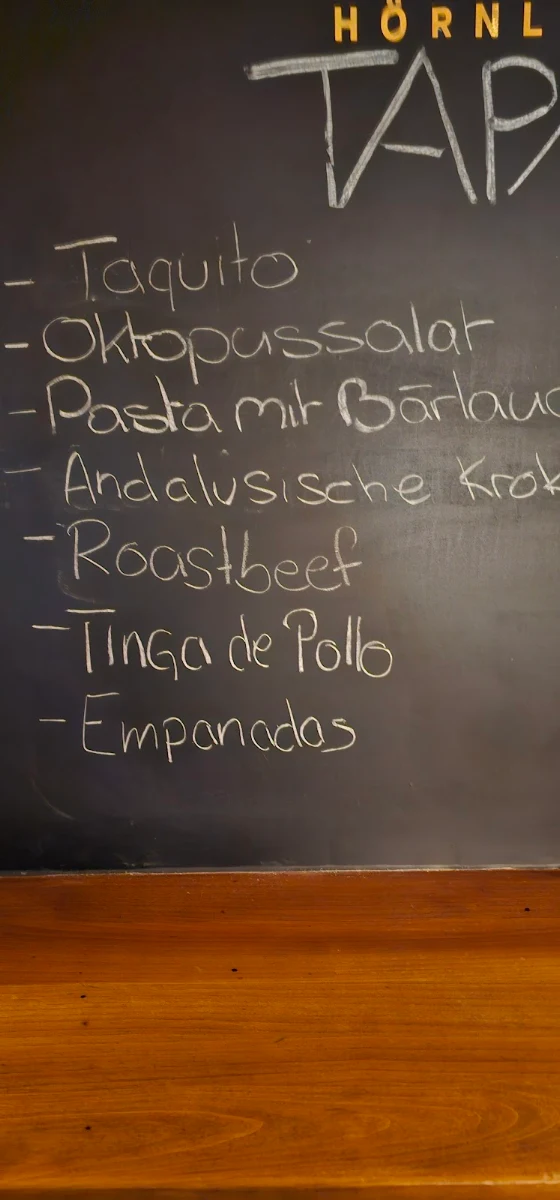 HÖRNL
TAPA
- Taquito
- Oktopussalat
- Pasta mit Bärlauc
- Andalusische Krok
- Roastbeef
- Tinga de Pollo
- Empanadas